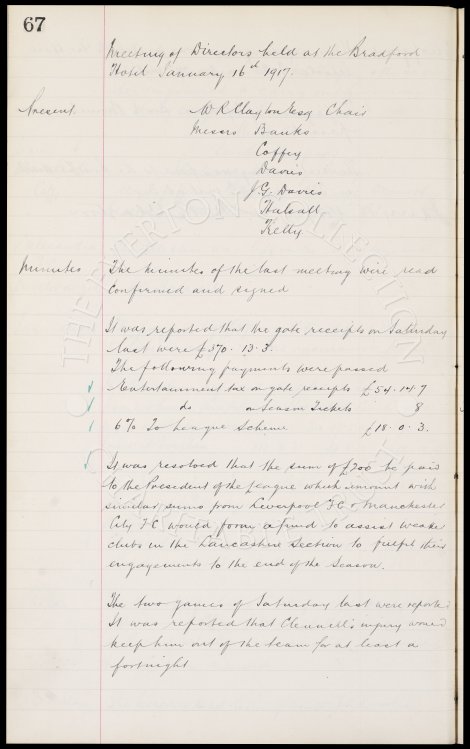 67
Meeting of Directors held at the Bradford
Hotel January 16th 1917.
Present W R Clayton Esq Chair
Messrs Banks
Coffey
Davies
J.G. Davies
Halsall
Kelly
Minutes The Minutes of the last meeting were read
Confirmed and signed
It was reported that the gate receipts on Saturday
last were £370. 13. 3.
The following payments were passed
Entertainment tax on gate receipts £54. 14. 7
do on Season Tickets 8
6% To League Scheme £18. 0. 3.
It was resolved that the sum of £200 be paid
to the President of the League which amount with
similar sums from Liverpool F C & Manchester
City F C would form a fund to assist weaker
clubs in the Lancashire Section to fulfil their
engagements to the end of the Season.
The two games of Saturday last were reported
It was reported that Clennell's injury would
keep him out of the team for at least a
fortnight
THE EVERTON COLLECTION